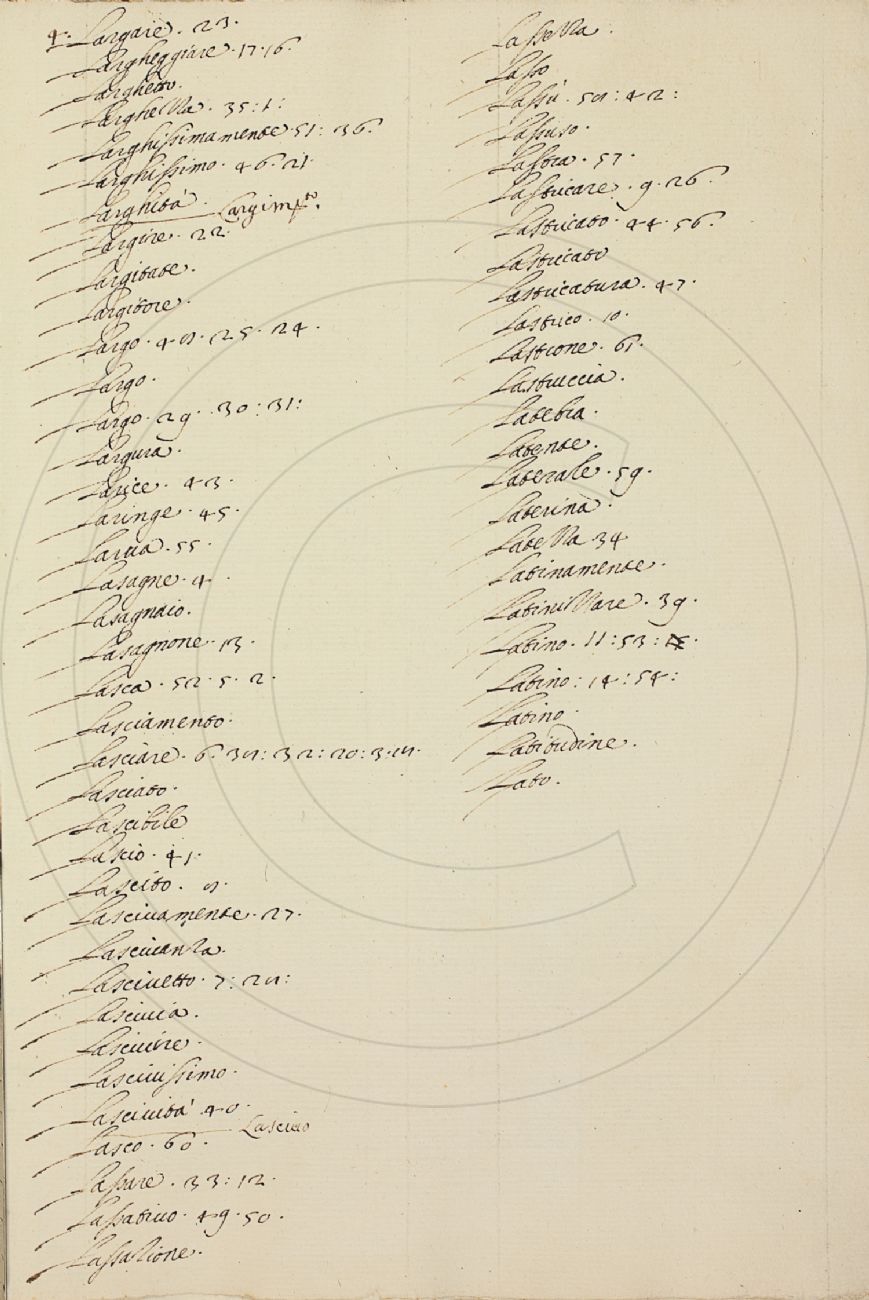 4. Largare. 23.
Largheggiare. 17. 16.
Larghetto.
Larghezza. 35: 1:
Larghissimamente. 51: 36.
Larghissimo. 46. 21.
Larghità.
Largimto.
Largire. 22.
Largitate.
Largitore.
Largo. 48. 25. 24.
Largo.
Largo. 29. 30: 31:
Largura.
Larice. 43.
Laringe. 45.
Larua. 55.
Lasagne. 4.
Lasagnaio.
Lasagnone. 13.
Lasca. 52. 5. 2.
Lasciamento.
Lasciare. 6. 38: 32: 20: 3. 18.
Lasciato.
Lascibile
Lascio. 41.
Lascito. 8.
Lasciuamente. 27.
Lasciuanza.
Lasciuetto. 7: 28:
Lasciuia.
Lasciuire.
Lasciuissimo.
Lasciuità. 40.
Lasciuo
Lasco. 60.
Lassare. 33: 12.
Lassatiuo. 49. 50.
Lassazione.
Lassezza.
Lasso
Lassù. 58: 42:
Lassuso.
Lastra. 57.
Lastricare. 9. 26.
Lastricato. 44. 56.
Lastricato
Lastricatura. 47.
Lastrico. 10.
Lastrone. 61.
Lastruccia.
Latebra.
Latente.
Laterale. 59.
Laterina.
Latezza 34
Latinamente.
Latinizzare. 39.
Latino. 11: 53:
Latino: 14: 54:
Latino.
Latitudine.
Lato.